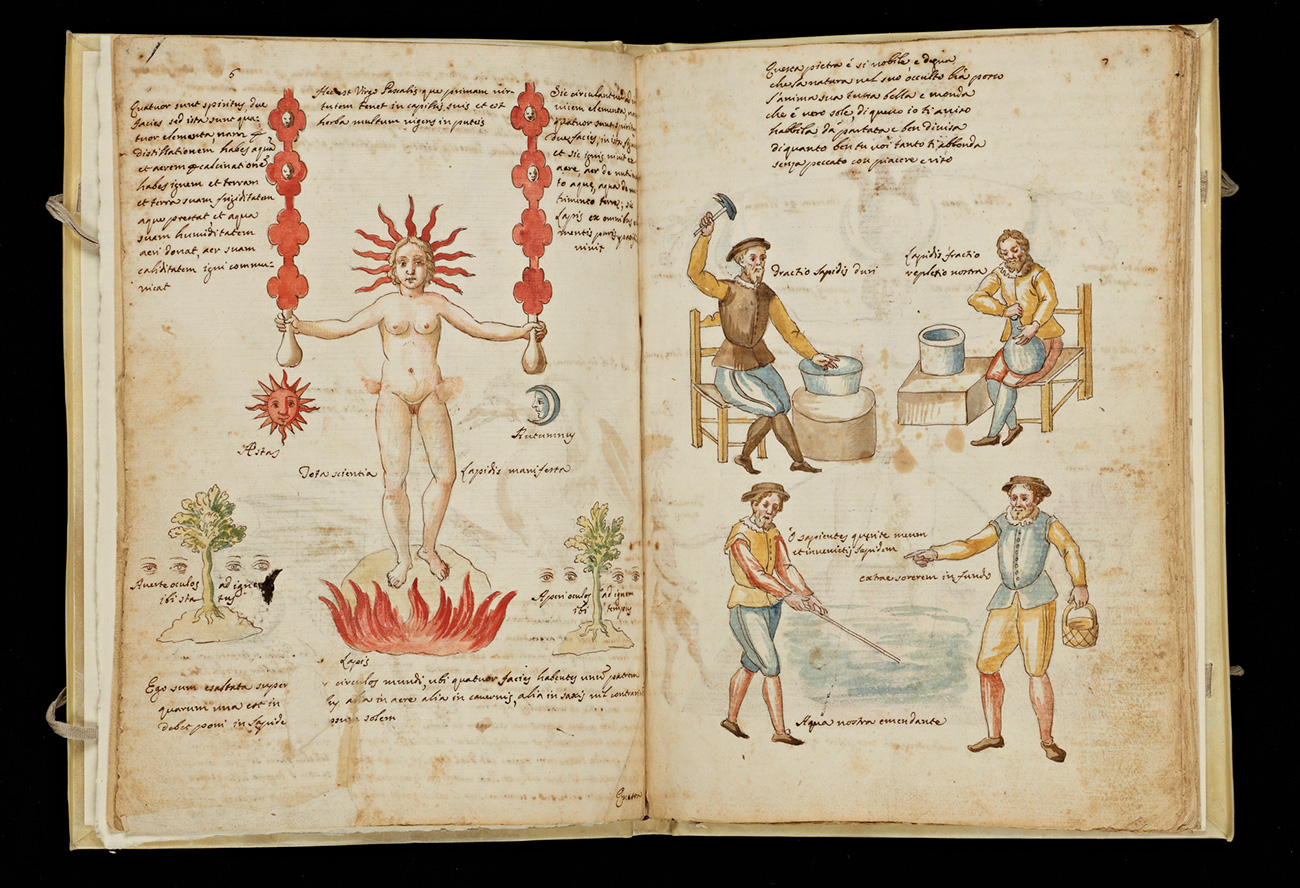 6
Quatuor sunt spiritus due
facies sed ita sunt qua-
tuor elementa, nam p
distillationem habes aquā
et aerem p calcinationē
habes ignem et terram
et terra suam frigiditatem
aque prestat et aqua
suam humiditatem
aeri donat, aer suam
caliditatem igni commu-
nicat
Hec est Virgo Pascalis que primam vir-
tutem tenet in capillis suis et est
herba multum vigens in puteis
Sic circulantur ad
vicem elementa,
quatuor sunt
due facies, in
et sic ignis vivit ex
aere, aer de
to aque, aqua de
trimento terre; sic
Lapis ex omnibus
mentis
vivit
Æstas
Autumnus
Tota scientia
Lapidis manifesta
Averte oculos ad igne
ibi sta tus
Aperi oculos ad ignem
ibi tempus
Lapis
Ego sum exaltata super
quarum una est in
debet poni in lapide
circulos mundi, ubi quatuor facies habentes unum patrem
alia in aere alia in cavernis, alia in saxis
solem
Questa
Questa pietra è si nobile e degna
che la natura nel suo occulto
l'anima sua tutta bella e monda
che è vero sole di quello io ti aviso
habbila da partata e ben divisa
di quanto ben tu voi tanto ti abbonda
senza peccato con piacere e riso
Fractio lapidis duri
Lapidis fractio
repletio nostra
O sapientes querite meum
et invenietis lapidem
extrae sororem in fundo
Aqua nostra emendante